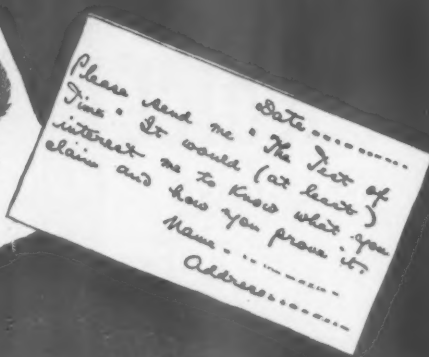 Date..........
Please send me "The Test of
Time." It would (at least)
interest me to know what you
claim and how you prove it.
Name...........
Address..........